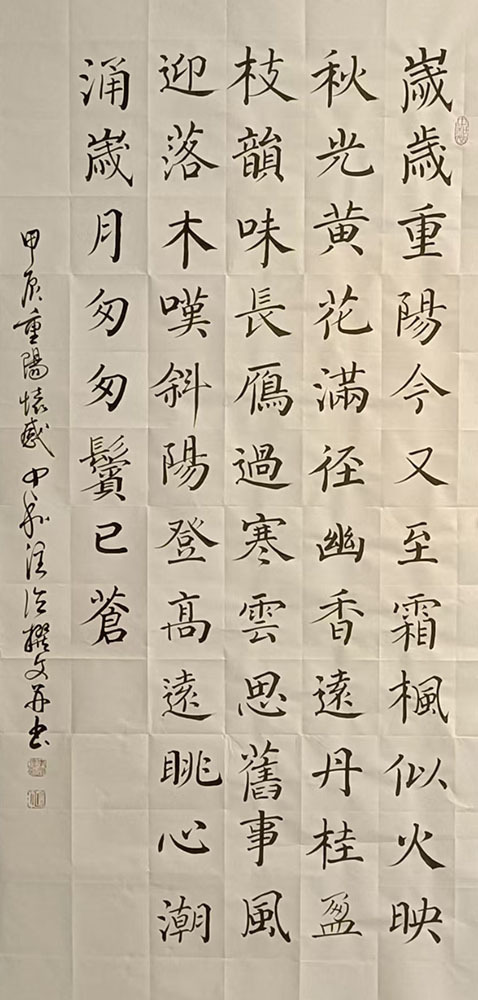 歲歲重陽今又至霜楓似火映
秋光黄花滿徑幽香遠丹桂盈
枝韻味長雁過寒雲思舊事風
迎落木嘆斜陽登高遠眺心潮
涌歲月匆匆鬢已蒼
甲辰重陽懷感中和汪治撰文并书